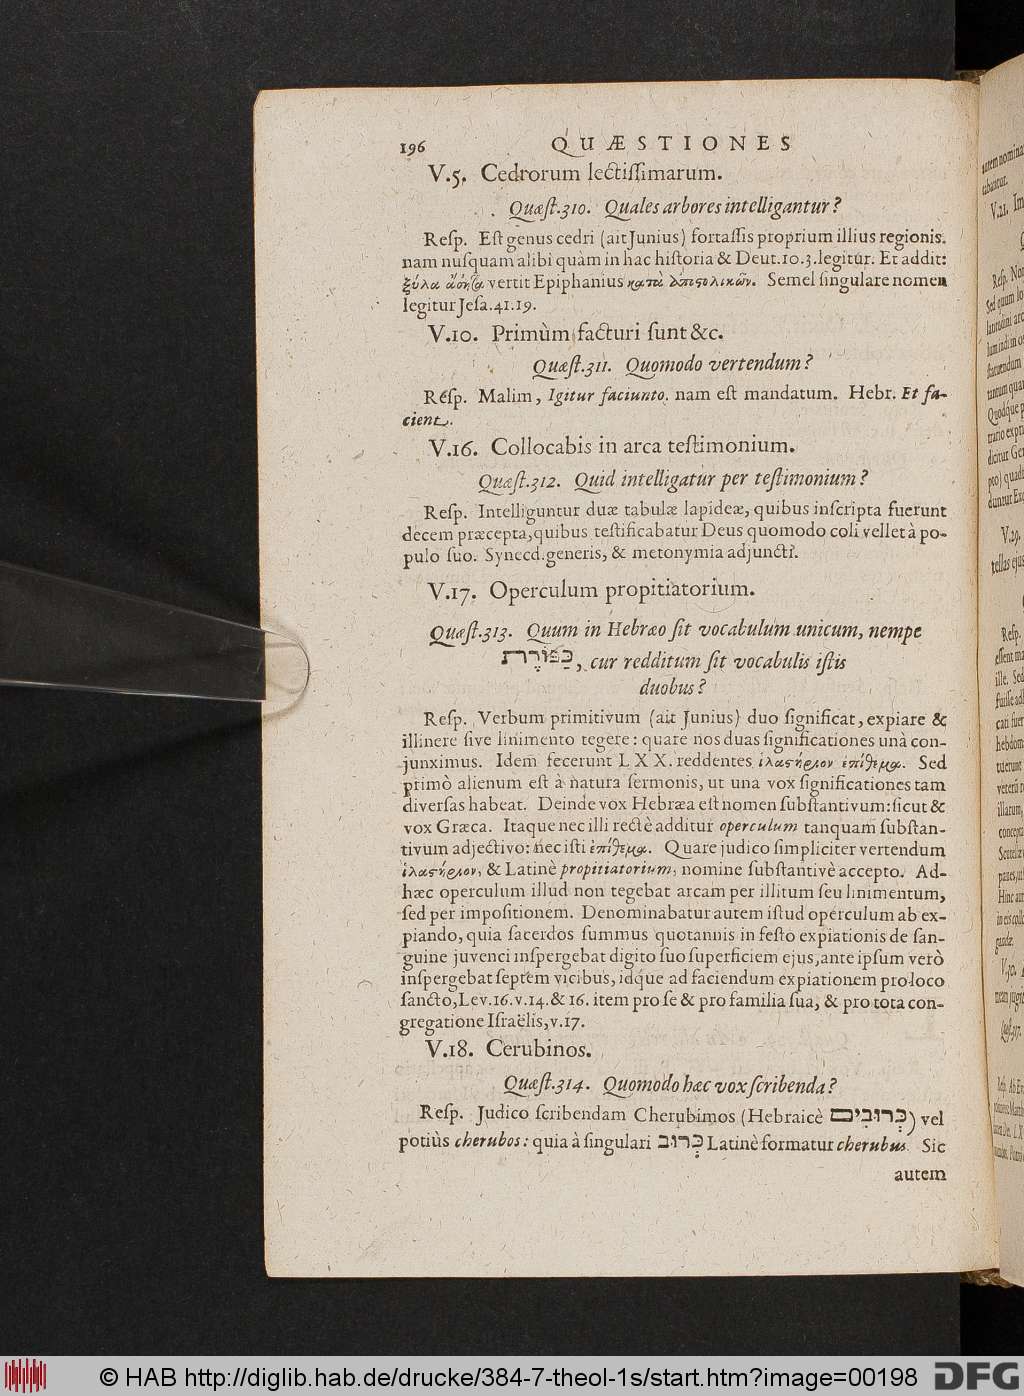 196 QUÆSTIONES
V.5. Cedrorum lectissimarum.
Quæst.310. Quales arbores intelligantur?
Resp. Est genus cedri (ait Junius) fortassis proprium illius regionis.
nam nusquam alibi quàm in hac historia & Deut.10.3.legitur. Et addit:
ξύλα vertit Epiphanius κατὰ Semel singulare nomen
legitur Jesa.41.19.
V.10. Primùm facturi sunt &c.
Quæst.311. Quomodo vertendum?
Resp. Malim, Igitur faciunto. nam est mandatum. Hebr. Et fa-
cient.
V.16. Collocabis in arca testimonium.
Quæst.312. Quid intelligatur per testimonium?
Resp. Intelliguntur duæ tabulæ lapideæ, quibus inscripta fuerunt
decem præcepta, quibus testificabatur Deus quomodo coli vellet à po-
pulo suo. Synecd.generis, & metonymia adjuncti.
V.17. Operculum propitiatorium.
Quæst.313. Quum in Hebræo sit vocabulum unicum, nempe
כַּפּוֹרֶת, cur redditum sit vocabulis istis
duobus?
Resp. Verbum primitivum (ait Junius) duo significat, expiare &
illinere sive linimento tegere: quare nos duas significationes unà con-
junximus. Idem fecerunt LXX. reddentes ἱλαστήριον ἐπίθεμα. Sed
primò alienum est à natura sermonis, ut una vox significationes tam
diversas habeat. Deinde vox Hebræa est nomen substantivum: sicut &
vox Græca. Itaque nec illi rectè additur operculum tanquam substan-
tivum adjectivo: nec isti ἐπίθεμα. Quare judico simpliciter vertendum
ἱλαστήριον, & Latinè propitiatorium, nomine substantivè accepto. Ad-
hæc operculum illud non tegebat arcam per illitum seu linimentum,
sed per impositionem. Denominabatur autem istud operculum ab ex-
piando, quia sacerdos summus quotannis in festo expiationis de san-
guine juvenci inspergebat digito suo superficiem ejus, ante ipsum verò
inspergebat septem vicibus, idque ad faciendum expiationem pro loco
sancto, Lev.16.v.14.& 16. item pro se & pro familia sua, & pro tota con-
gregatione Israëlis, v.17.
V.18. Cerubinos.
Quæst.314. Quomodo hæc vox scribenda?
Resp. Judico scribendam Cherubimos (Hebraicè כְּרוּבִים) vel
potiùs cherubos: quia à singulari כְּרוּב Latinè formatur cherubus. Sic
autem
© HAB http://diglib.hab.de/drucke/384-7-theol-1s/start.htm?image=00198
DFG